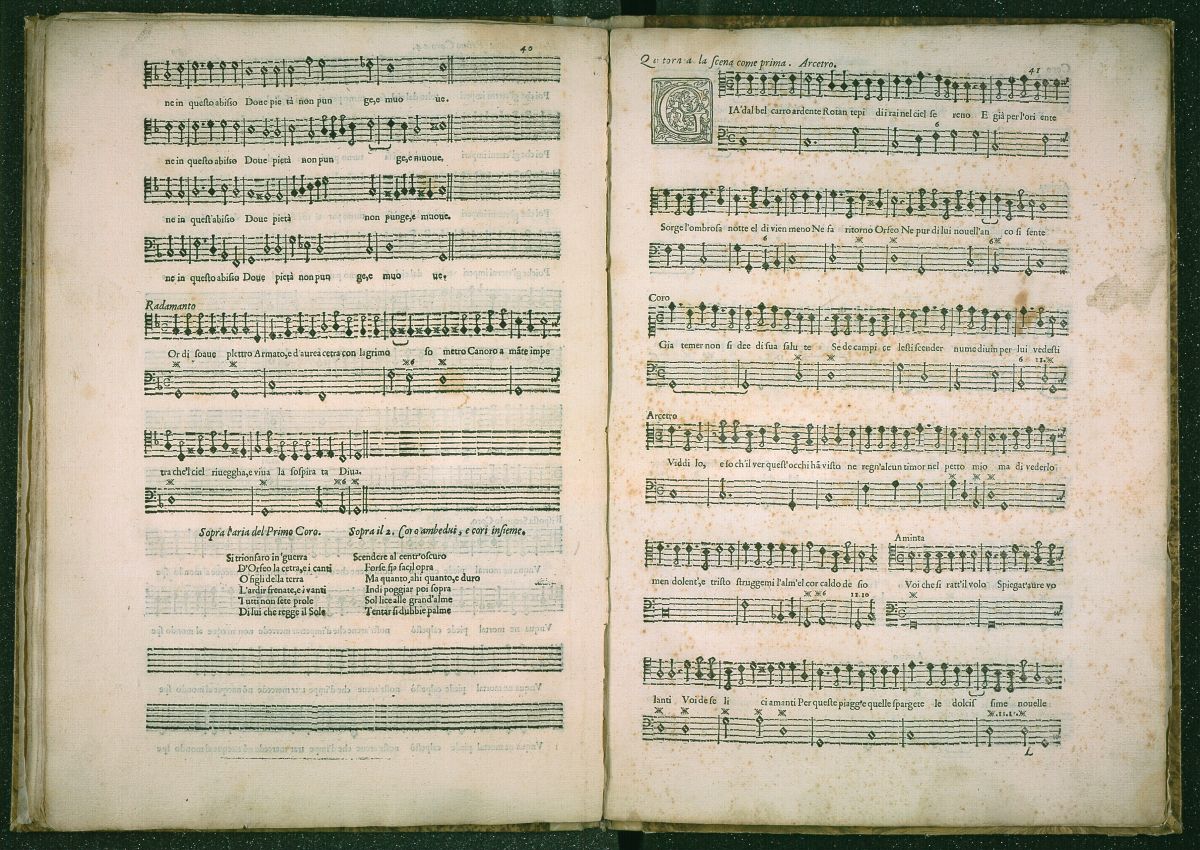 40
ne in questo abisso Doue pie tà non pun ge,e muo ue.
ne in questo abisso Doue pietà non pun ge,e muoue.
ne in quest'abisso Doue pietà non punge,e muoue.
ne in questo abisso Doue pietà non pun ge,e muo ue.
Radamanto
Or di soaue plettro Armato,e d'aurea cetra con lagrimo so metro Canoro a māte impe
6
tra che'l ciel riuegga,e viua la sospira ta Diua.
6
Sopra l'aria del Primo Coro. Sopra il 2. Coro ambedui, e cori insieme.
Si trionfaro in guerra
D'Orfeo la cetra,e i canti
O figli della terra
L'ardir frenate,e i vanti
Tutti non sete prole
Di lui che regge il Sole
Scendere al centr'oscuro
Forse sia facil opra
Ma quanto,ahi quanto,e duro
Indi poggiar poi sopra
Sol lice alle grand'alme
Tentar si dubbie palme
41
Qui torna la scena come prima. Arcetro.
G
IA'dal bel carro ardente Rotan tepi di i rai nel ciel se reno E già per l'ori ente
6 6
Sorge l'ombrosa notte el dì vien meno Ne fa ritorno Orfeo Ne pur di lui nouell'an co si sente
6 6
Coro
Gia temer non si dee di sua salu te Se de campi ce lesti scender nume diuin per lui vedesti
6 11.
Arcetro
Viddi lo, e so ch'il ver quest'occhi hā visto ne regn'alcun timor nel petto mio ma di vederlo
Aminta
men dolent',e tristo struggemi l'alm'el cor caldo de sio Voi che si ratt'il volo Spiegat'aure vo
6 12.10
lanti Voi de se li ci amanti Per queste piagg'e quelle spargete le dolcis sime nouelle
L